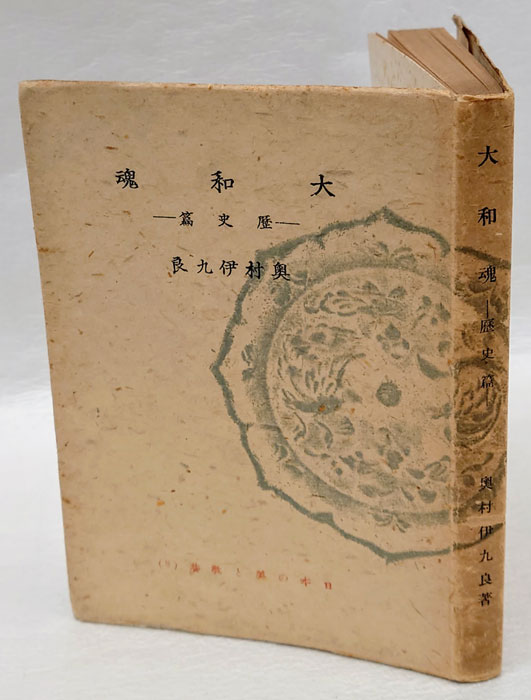 魂和大
―篇史歴―
良九伊村奥
日本の美と教養
大和魂―歴史篇―
奥村伊九良著